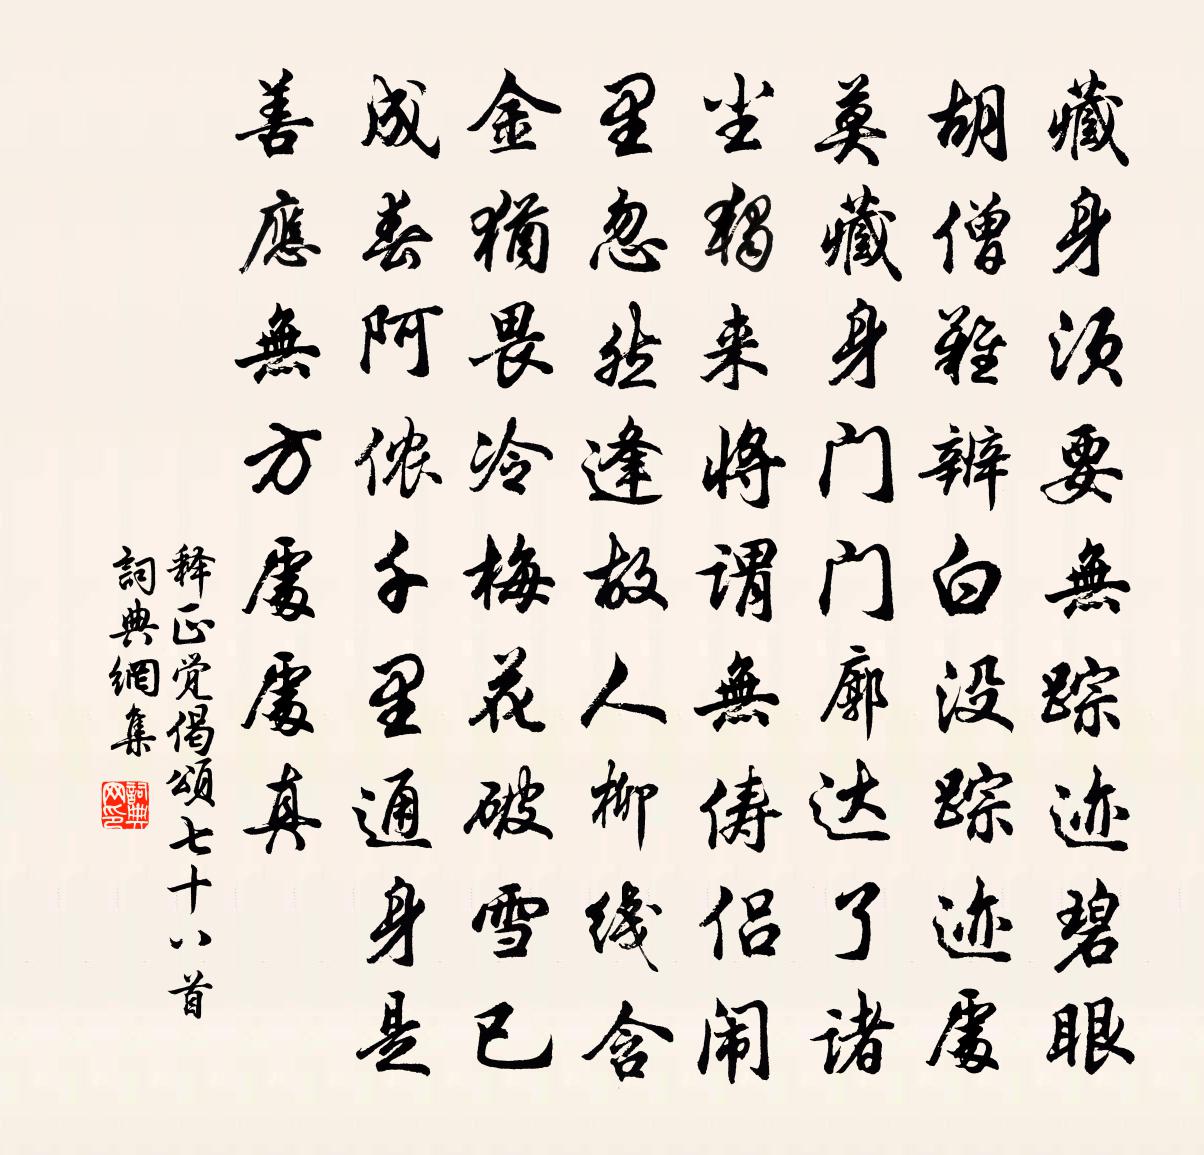 藏身须要無踪迹碧眼
胡僧難辨白没踪迹處
莫藏身门门廓达了诸
尘獨来将谓無俦侣闹
里忽然逢故人柳线含
金猶畏冷梅花破雪已
成春阿侬千里通身是
善應無方處處真
释正觉偈頌七十八首
詞典網集
詞典网印